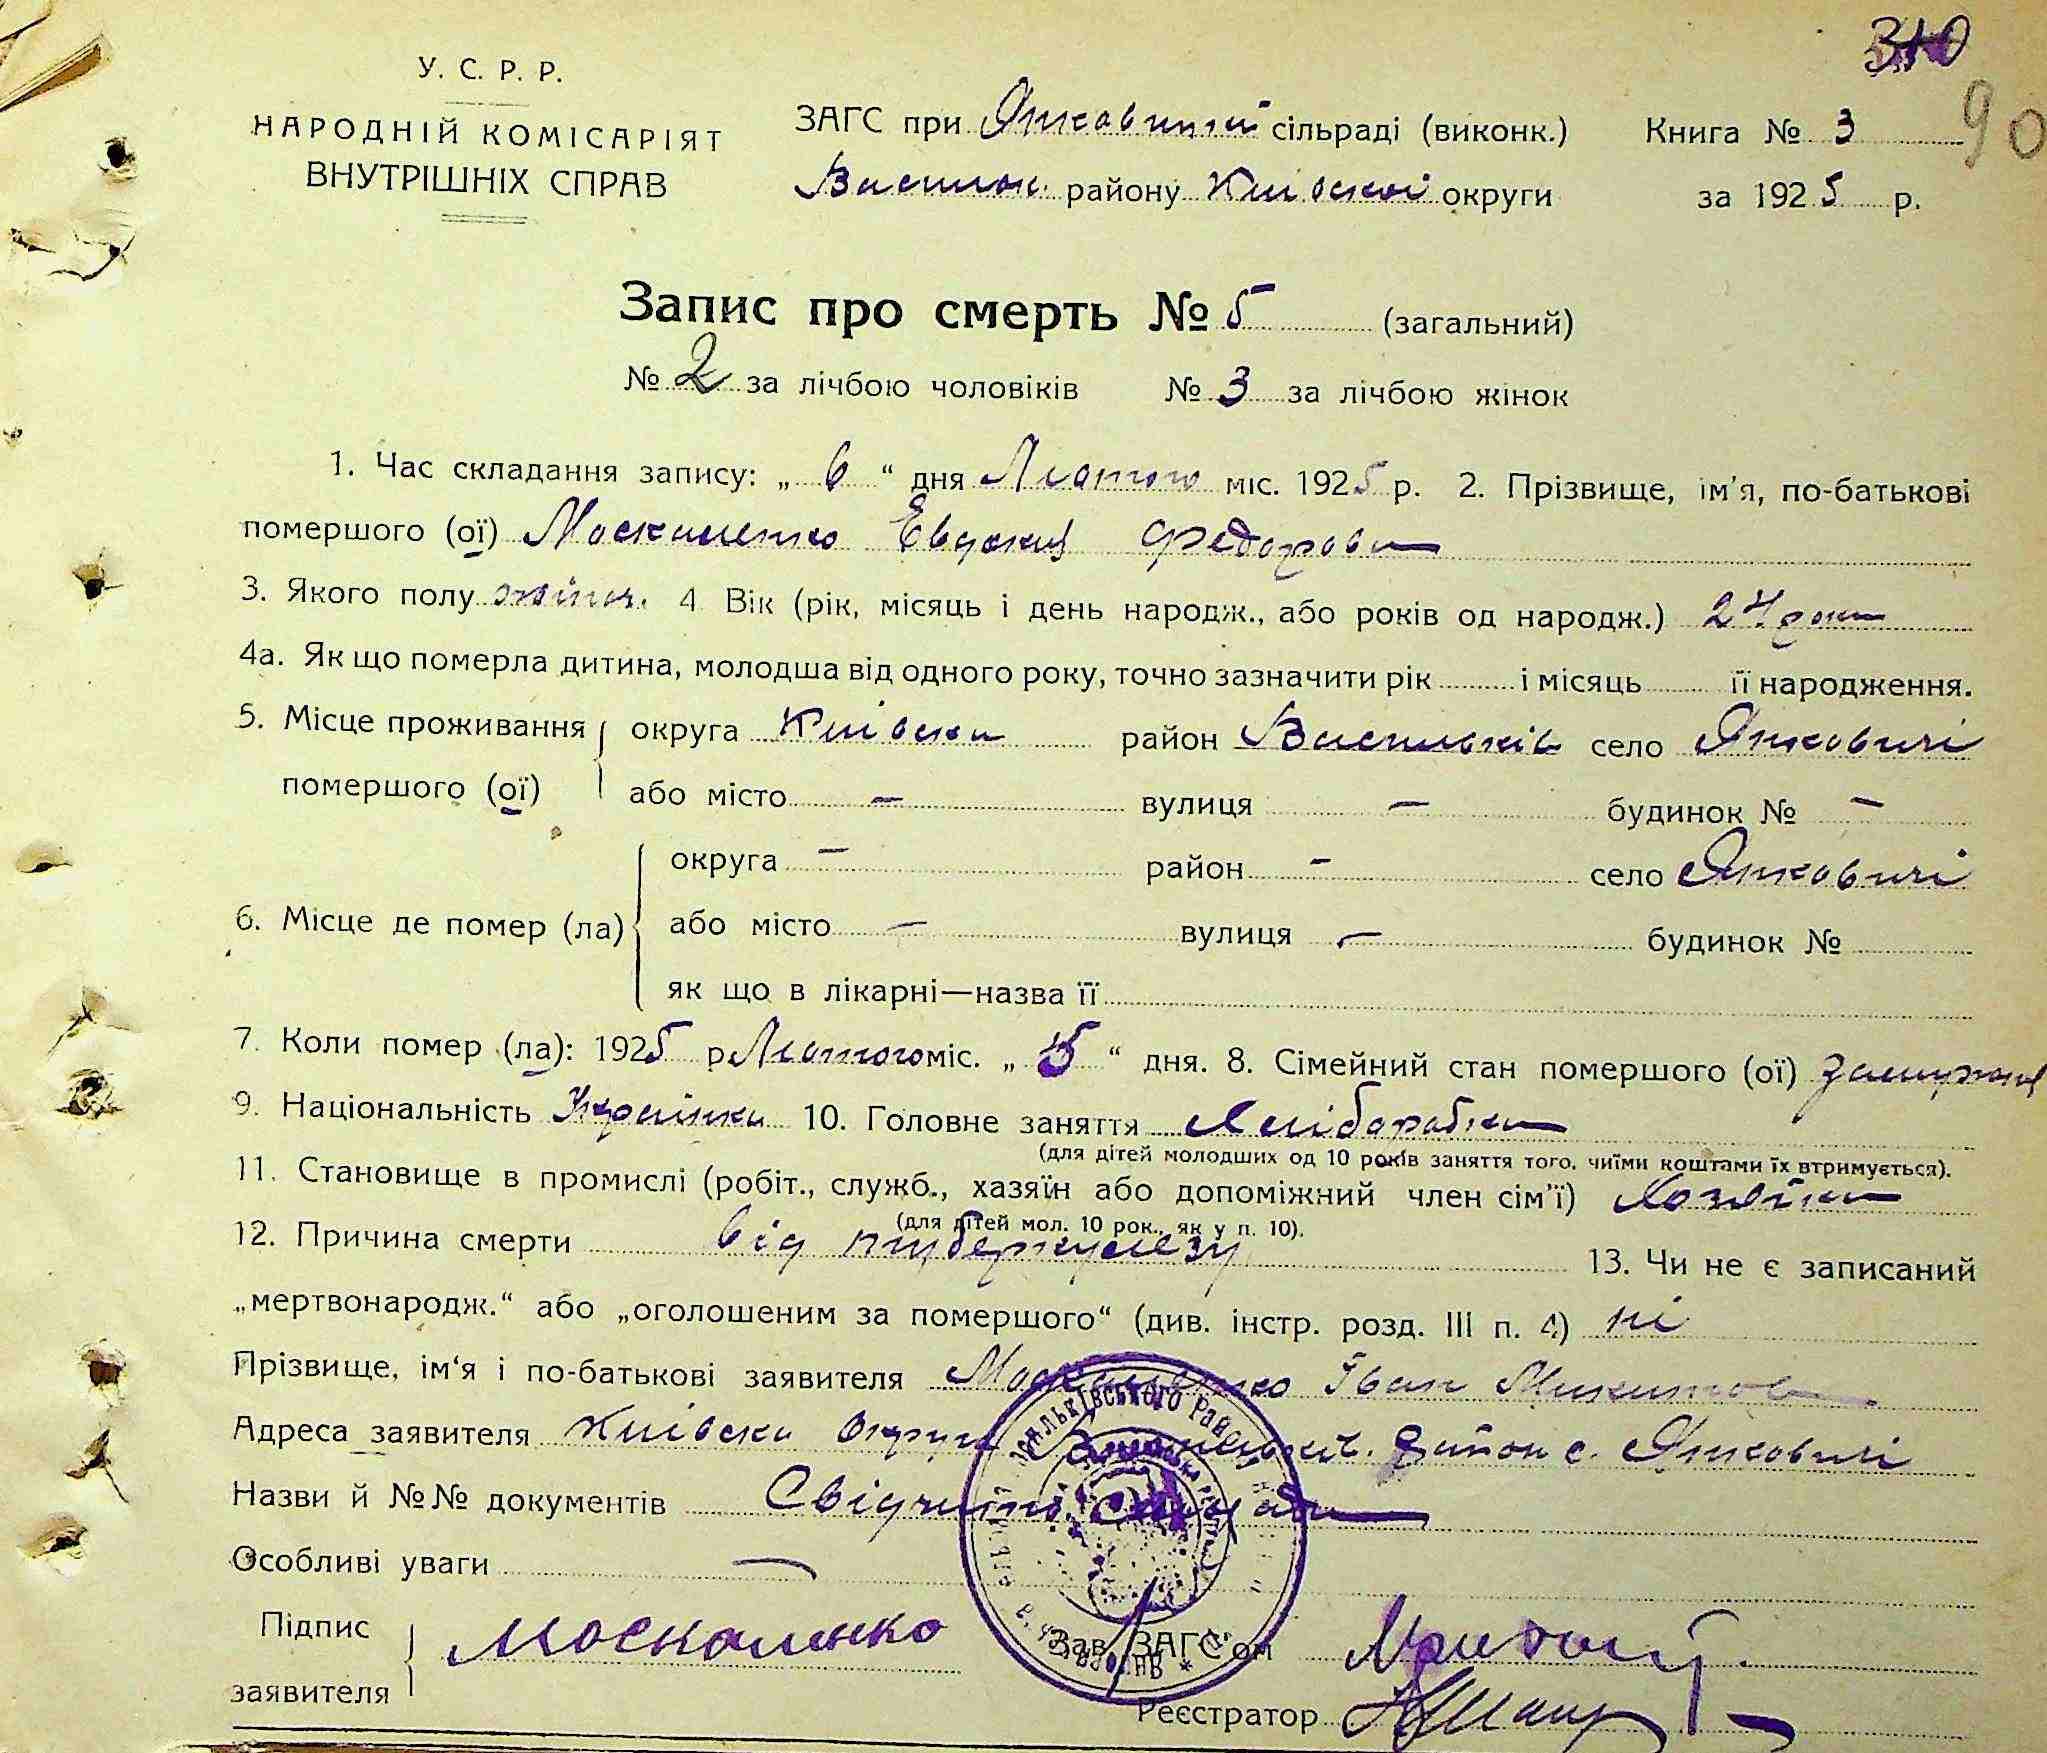 310
90
У. С. Р. Р.
НАРОДНІЙ КОМІСАРІЯТ
ВНУТРІШНІХ СПРАВ
ЗАГС при Янковицькій сільраді (виконк.) Книга № 3
Васильк. району Київской округи за 1925 р.
Запис про смерть № 5 (загальний)
№ 2 за лічбою чоловіків № 3 за лічбою жінок
1. Час складання запису: „ 6 “ дня Лютого міс. 1925 р. 2. Прізвище, ім'я, по-батькові
помершого (ої) Москаленко Евдокия Федоровна
3. Якого полу жіноч. 4 Вік (рік, місяць і день народж., або років од народж.) 24 роки
4а. Як що померла дитина, молодша від одного року, точно зазначити рік і місяць її народження.
5. Місце проживання округа Київска район Васильків село Янковичі
помершого (ої) або місто — вулиця — будинок № —
округа — район - село Янковичі
6. Місце де помер (ла) або місто — вулиця — будинок №
як що в лікарні—назва її
7. Коли помер (ла): 1925 р Лютого міс. „ 5 “ дня. 8. Сімейний стан помершого (ої) замужня
9. Національність Українка 10. Головне заняття Хліборобка
(для дітей молодших од 10 років заняття того, чиїми коштами їх втримується).
11. Становище в промислі (робіт., служб., хазяїн або допоміжний член сім'ї) Хозяйка
(для дітей мол. 10 рок., як у п. 10).
12. Причина смерти від туберкулезу 13. Чи не є записаний
„мертвонародж.“ або „оголошеним за помершого“ (див. інстр. розд. III п. 4) ні
Прізвище, ім‘я і по-батькові заявителя Москаленко Іван Микитов
Адреса заявителя Київска Округа Васильків. Район с. Янковичі
Назви й №№ документів
Особливі уваги —
Підпис Москаленко Зав. ЗАГС'ом
заявителя
Реєстратор